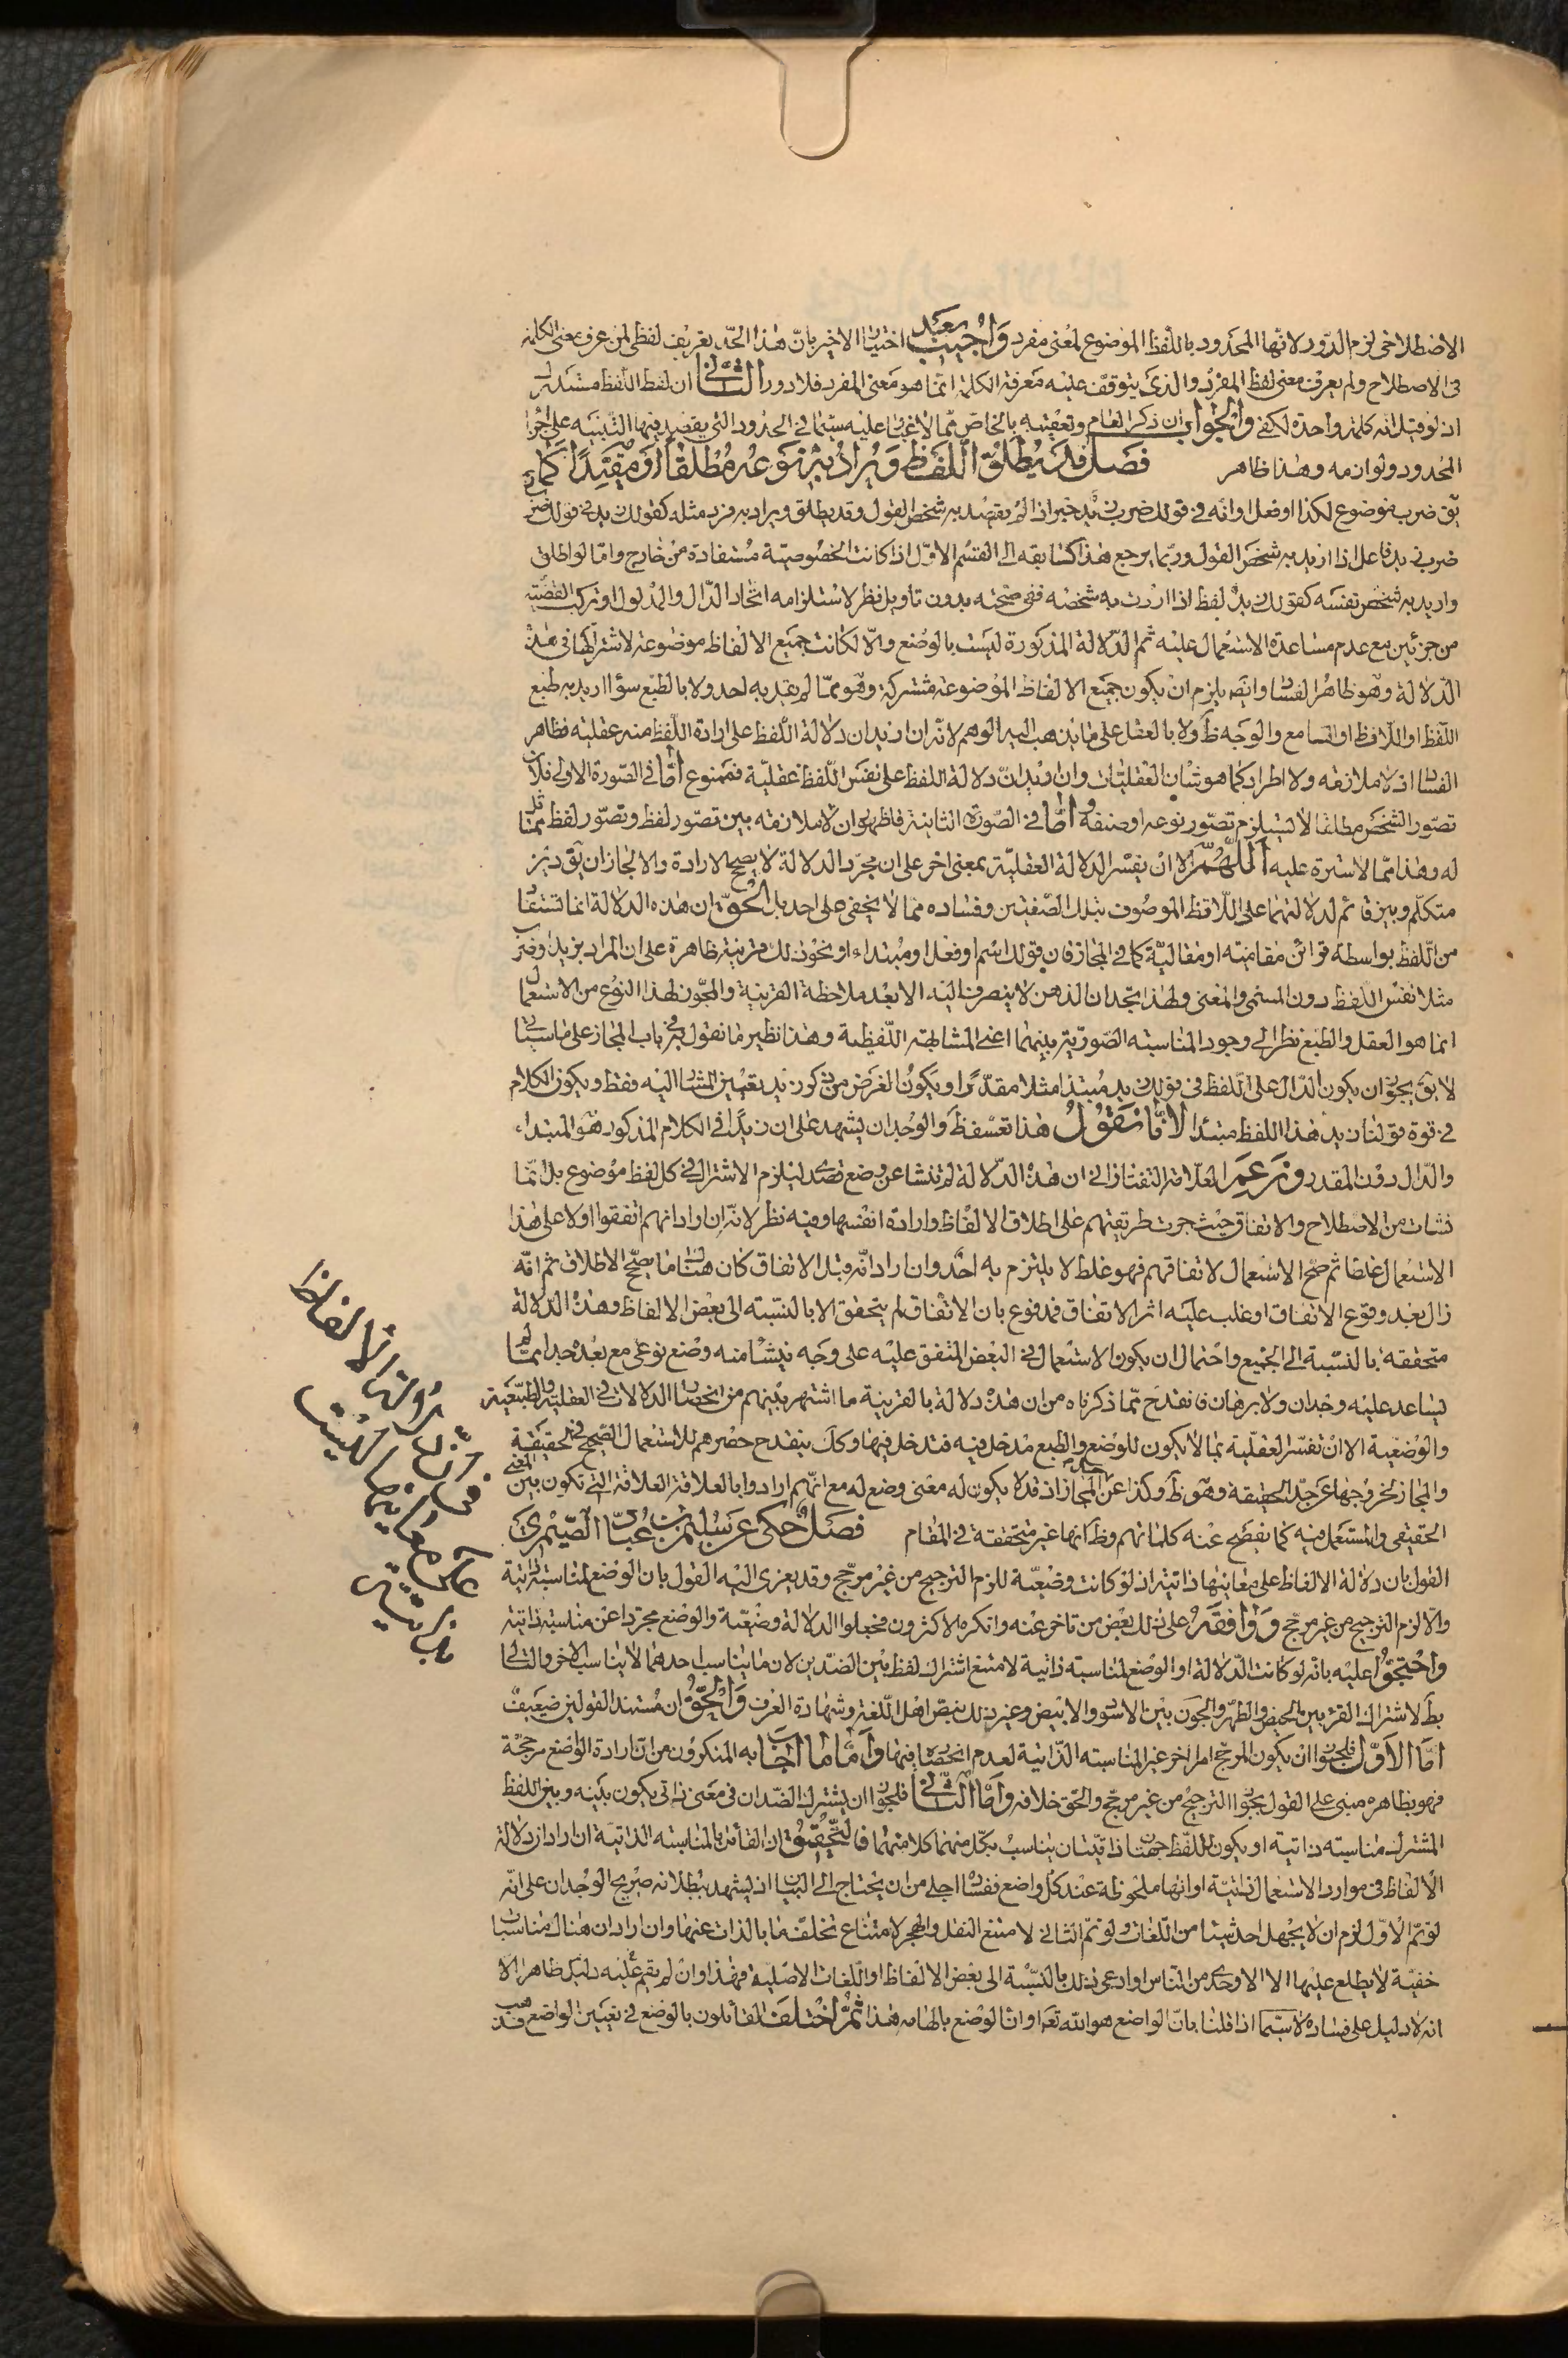 الاصطلاحى لزم الدور لانها المحدود باللفظ الموضوع لمعنى مفرد واجيب بعد اختيار الاخير بانّ هذا الحدّ تعريف لفظى لمن عرف معنى الكلمة
فى الاصطلاح ولم يعرف معنى لفظ المفرد والذى يتوقف عليه معرفة الكلمة انما هو معنى المفرد فلا دور الثّانى ان لفظ اللفظ مستدرك
اذ لو قيل انه كلمة واحدة لكفى والجواب ان ذكر العام وتعقيبه بالخاص ممّا لا غبار عليه سيّما فى الحدود التى يقصد فيها التنبيه على اجزاء
المحدود ولوازمه وهذا ظاهر فصل قد يطلق اللفظ ويراد به نوعه مطلقا او مقيدا كما
يق ضرب موضوع لكذا او فعل او انّه فى قولك ضرب زيد خبر اذا لم يقصد به شخص القول وقد يطلق ويراد به فرد مثله كقولك زيد فى قولك ضرب
ضرب زيد فاعل اذا اريد به شخص القول وربّما يرجع هذا كسابقه الى القسم الاوّل اذا كانت الخصوصيّة مستفادة من خارج وامّا لو اطلق
واريد به شخص نفسه كقولك زيد لفظ اذا اردت به شخصه ففى صحّته بدون تاويل نظر لاستلزامه اتحاد الدّال والمدلول او تركب القضيّة
من جزئين مع عدم مساعدة الاستعمال عليه ثم الدّلالة المذكورة ليست بالوضع والّا لكانت جميع الالفاظ موضوعة لاشتراكها فى هذه
الدّلالة وهو ظاهر الفساد وايضا يلزم ان يكون جميع الالفاظ الموضوعة مشتركة وهو ممّا لم يقل به احد ولا بالطبع سواء اريد به طبع
اللفظ او اللّافظ او السامع والوجه ظ ولا بالعقل على ما يذهب اليه الوهم لانّه ان اريد ان دلالة اللفظ على ارادة اللفظ منه عقلية فظاهر
الفساد اذ لا ملازمة ولا اطراد كما هو شان العقليّات وان اريد انّ دلالة اللفظ على نفس اللفظ عقليّة فممنوع امّا فى الصّورة الاولى فلان
تصوّر الشخص مطلقا لا يستلزم تصوّر نوعه او صنفه وامّا فى الصّورة الثانية فاظهر اذ لا ملازمة بين تصوّر لفظ وتصوّر لفظ مماثل
له وهذا ممّا لا سترة عليه اللّهمّ الّا ان يفسّر الدلالة العقليّة بمعنى اخر على ان مجرّد الدلالة لا يصحح الارادة والا لجاز ان يق ديز
متكلّم وبيز قائم لدلالتهما على اللّافظ الموصوف بتلك الصّفتين وفساده مما لا يخفى على احد بل الحقّ ان هذه الدلالة انما تستفاد
من اللفظ بواسطة قرائن مقاميّة او مقاليّة كما فى المجاز فان قولك اسم او فعل او مبتداء او نحو ذلك قرينة ظاهرة على ان المراد بزيد او ضرب
مثلا نفس اللفظ دون المسمى والمعنى ولهذا تجد ان الذهن لا ينصرف اليه الا بعد ملاحظة القرينة والمجّوز لهذا النوع من الاستعمال
انما هو العقل والطبع نظرا الى وجود المناسبة الصّوريّة بينهما اعنى المشابهة اللّفظية وهذا نظير ما نقول به فى باب المجاز على ما سياتى
لا يق يجوز ان يكون الدّال على اللفظ فى قولك زيد مبتدا مثلا مقدّرا ويكون الغرض من ذكر زيد تعيين المشار اليه فقط ويكون الكلام
فى قوة قولنا زيد هذا اللفظ مبتدا لانّا نقول هذا تعسّف ظ والوجدان يشهد على ان زيدا فى الكلام المذكور هو المبتداء
والدّال دون المقدر وزعم العلّامة التفتازانى ان هذه الدّلالة لم تنشا عن وضع قصدى ليلزم الاشتراك فى كل لفظ موضوع بل انّما
نشات من الاصطلاح والاتفاق حيث جرت طريقتهم على اطلاق الالفاظ وارادة انفسها وفيه نظر لانّه ان اراد انهم اتفقوا اولا على هذا
الاستعمال غلطا ثم صحّ الاستعمال لاتفاقهم فهو غلط لا يلتزم به احد وان اراد انّه قبل الاتفاق كان هناك ما يصحّح الاطلاق ثم انّه
زال بعد وقوع الاتفاق او غلب عليه اثر الاتفاق فمدفوع بان الاتفاق لم يتحقق الا بالنسبة الى بعض الالفاظ وهذه الدلالة
متحققة بالنسبة الى الجميع واحتمال ان يكون الاستعمال فى البعض المتفق عليه على وجه ينشا منه وضع نوعى مع بعده جدا ممّا لم
يساعد عليه وجدان ولا برهان فانقدح ممّا ذكرناه من ان هذه دلالة بالقرينة ما اشتهر بينهم من انحصار الدلالات فى العقلية والطبعية
والوضعية الا ان تفسّر العقلية بما لا يكون للوضع والطبع مدخل فيه فتدخل فيها وكك ينقدح حصرهم للاستعمال الصحيح فى الحقيقة
والمجاز لخروجها عن حدّ الحقيقة وهو ظ وكذا عن المجاز اذ قد لا يكون له معنى وضع له مع انّهم ارادوا بالعلاقة العلاقة التى تكون بين المعنى
الحقيقى والمستعمل فيه كما يفصح عنه كلماتهم وظ انها غير متحققة فى المقام فصل حكى عن سليمن بن عباد الصّيمرى
القول بان دلالة الالفاظ على معانيها ذاتية اذ لو كانت وضعيّة للزم الترجيح من غير مرجّح وقد يعزى اليه القول بان الوضع لمناسبة ذاتية
والّا لزم الترجيح من غير مرجّح ووافقه على ذلك بعض من تاخر عنه وانكره الاكثرون فجعلوا الدلالة وضعيّة والوضع مجرّدا عن مناسبة ذاتية
واحتجّوا عليه بانّه لو كانت الدّلالة او الوضع لمناسبة ذاتية لامتنع اشتراك لفظ بين الضدّين لان ما يناسب احدهما لا يناسب الاخر والتالى
بط لاشتراك القرء بين الحيض والطهر والجون بين الاسود والابيض وغير ذلك بنصّ اهل اللّغة وشهادة العرف والحقّ ان مستند القولين ضعيف
امّا الاوّل فلجواز ان يكون المرجّح امرا اخر غير المناسبة الذّاتية لعدم انحصاره فيها وامّا ما اجاب به المنكرون من ان ارادة الواضع مرجحة
فهو بظاهره مبنى على القول بجواز الترجيح من غير مرجّح والحق خلافه وامّا الثّانى فلجواز ان يشترك الضّدان فى معنى ذاتى يكون بينه وبين اللفظ
المشترك مناسبة ذاتية او يكون للّفظ جهتان ذاتيّتان يناسب بكلّ منهما كلا منهما فالتّحقيق ان القائل بالمناسبة الذاتيّة ان اراد ان دلالة
الالفاظ فى موارد الاستعمال ذاتيّة او انها ملحوظة عند كل واضع ففساده اجلى من ان يحتاج الى البيان اذ يشهد ببطلانه صريح الوجدان على انّه
لو تمّ الاوّل لزم ان لا يجهل احد شيئا من اللّغات ولو تمّ الثانى لامتنع النقل والهجر لامتناع تخلّف ما بالذات عنها وان اراد ان هناك مناسبات
خفيّة لا يطلع عليها الا الاوحدى من الناس او ادعى ذلك بالنسبة الى بعض الالفاظ او اللّغات الاصلية فهذا وان لم يقم عليه دليل ظاهر الا
انه لا دليل على فساده لا سيّما اذا قلنا بانّ الواضع هو الله تعه او انّ الوضع بالهامه هذا ثمّ اختلف القائلون بالوضع فى تعيين الواضع فذهب
فى انّ دلالة الالفاظ
على معانيها ليست
بذاتية